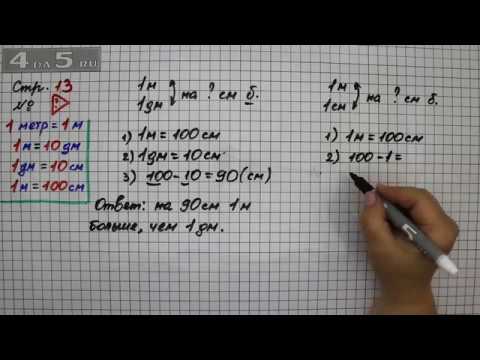 4 ДА 5 RU
Стр. 13
№ ?
1 метр = 1 м
1 м = 10 дм
1 дм = 10 см
1 м = 100 см
1 м
1 дм
на ? см б.
1) 1 м = 100 см
2) 1 дм = 10 см
3) 100 - 10 = 90 (см)
Ответ: на 90 см 1 м
больше, чем 1 дм.
1 м
1 см
на ? см б.
1) 1 м = 100 см
2) 100 - 1 =